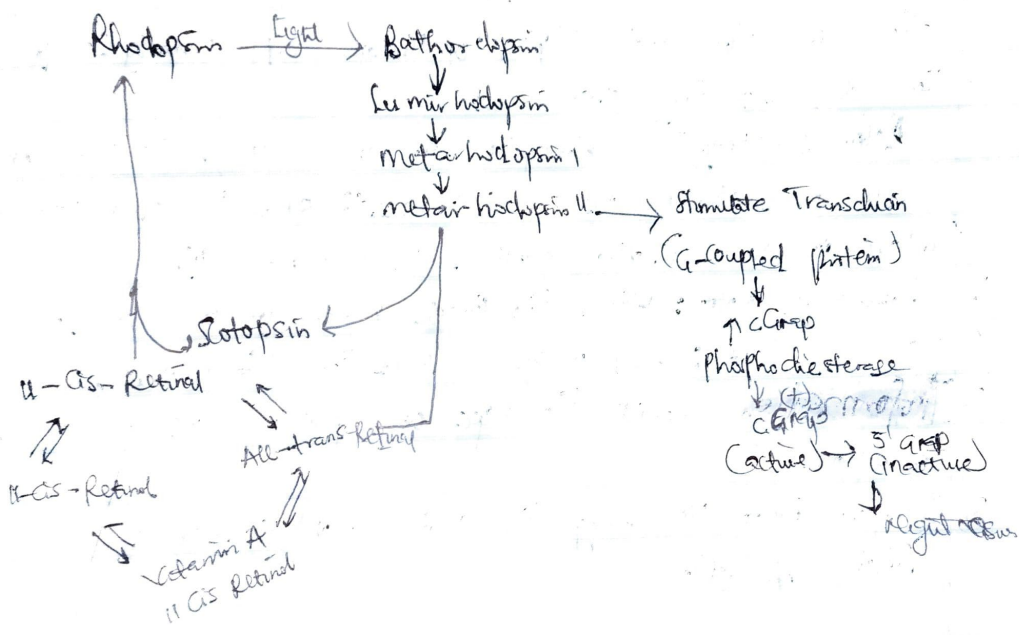 Rhodopsin
Light
Bathorodopsin
Lumirhodopsin
metarhodopsin I
metarhodopsin II
Stimulate Transducin
(G-Coupled Protein)
↑ cGmp
phosphodiesterase
(+)
cGmp
(active) → 5' Gmp
(inactive)
Night
Scotopsin
11-Cis-Retinal
All-trans-Retinal
11-Cis-Retinol
Vitamin A
11 Cis Retinol